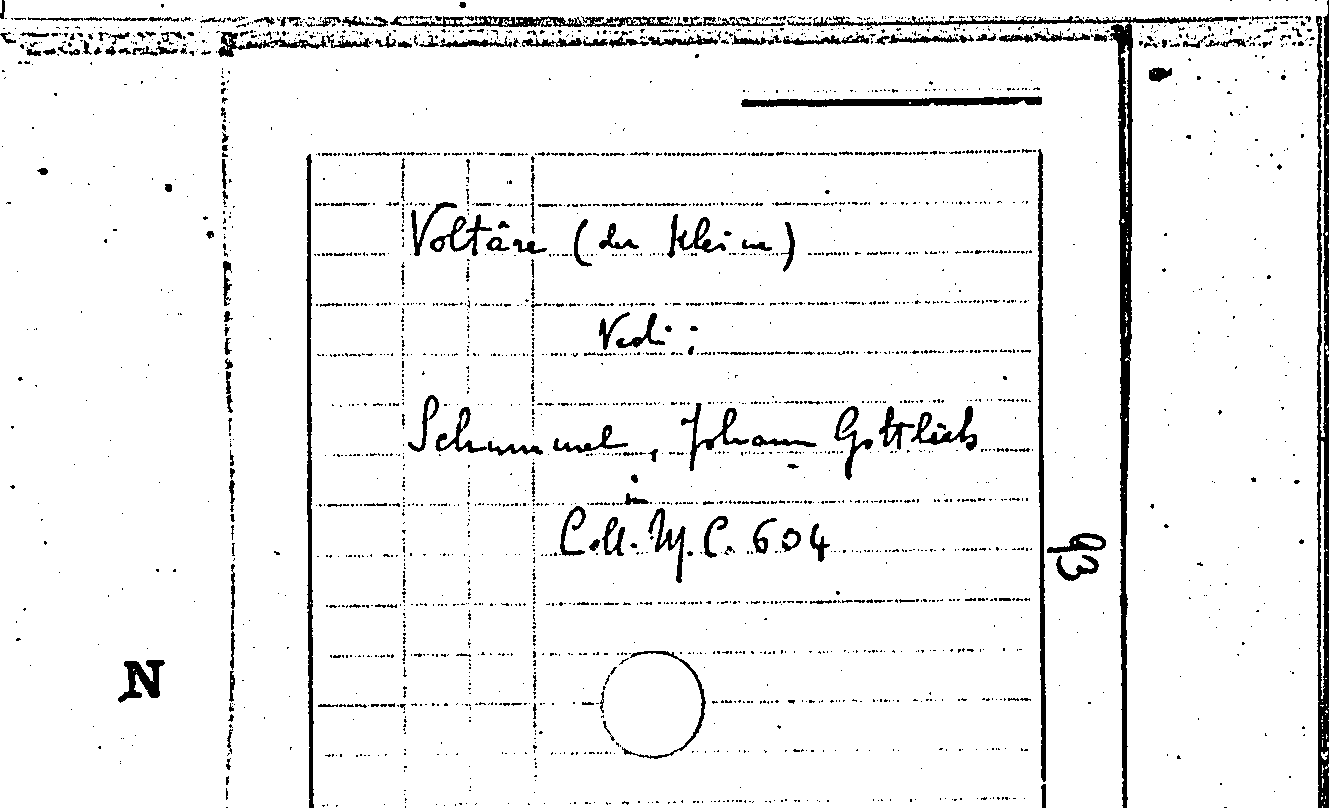 Voltäre (der kleine)
Vedi:
Schummel, Johann Gottlieb
in
Coll. M. C. 604
93
N